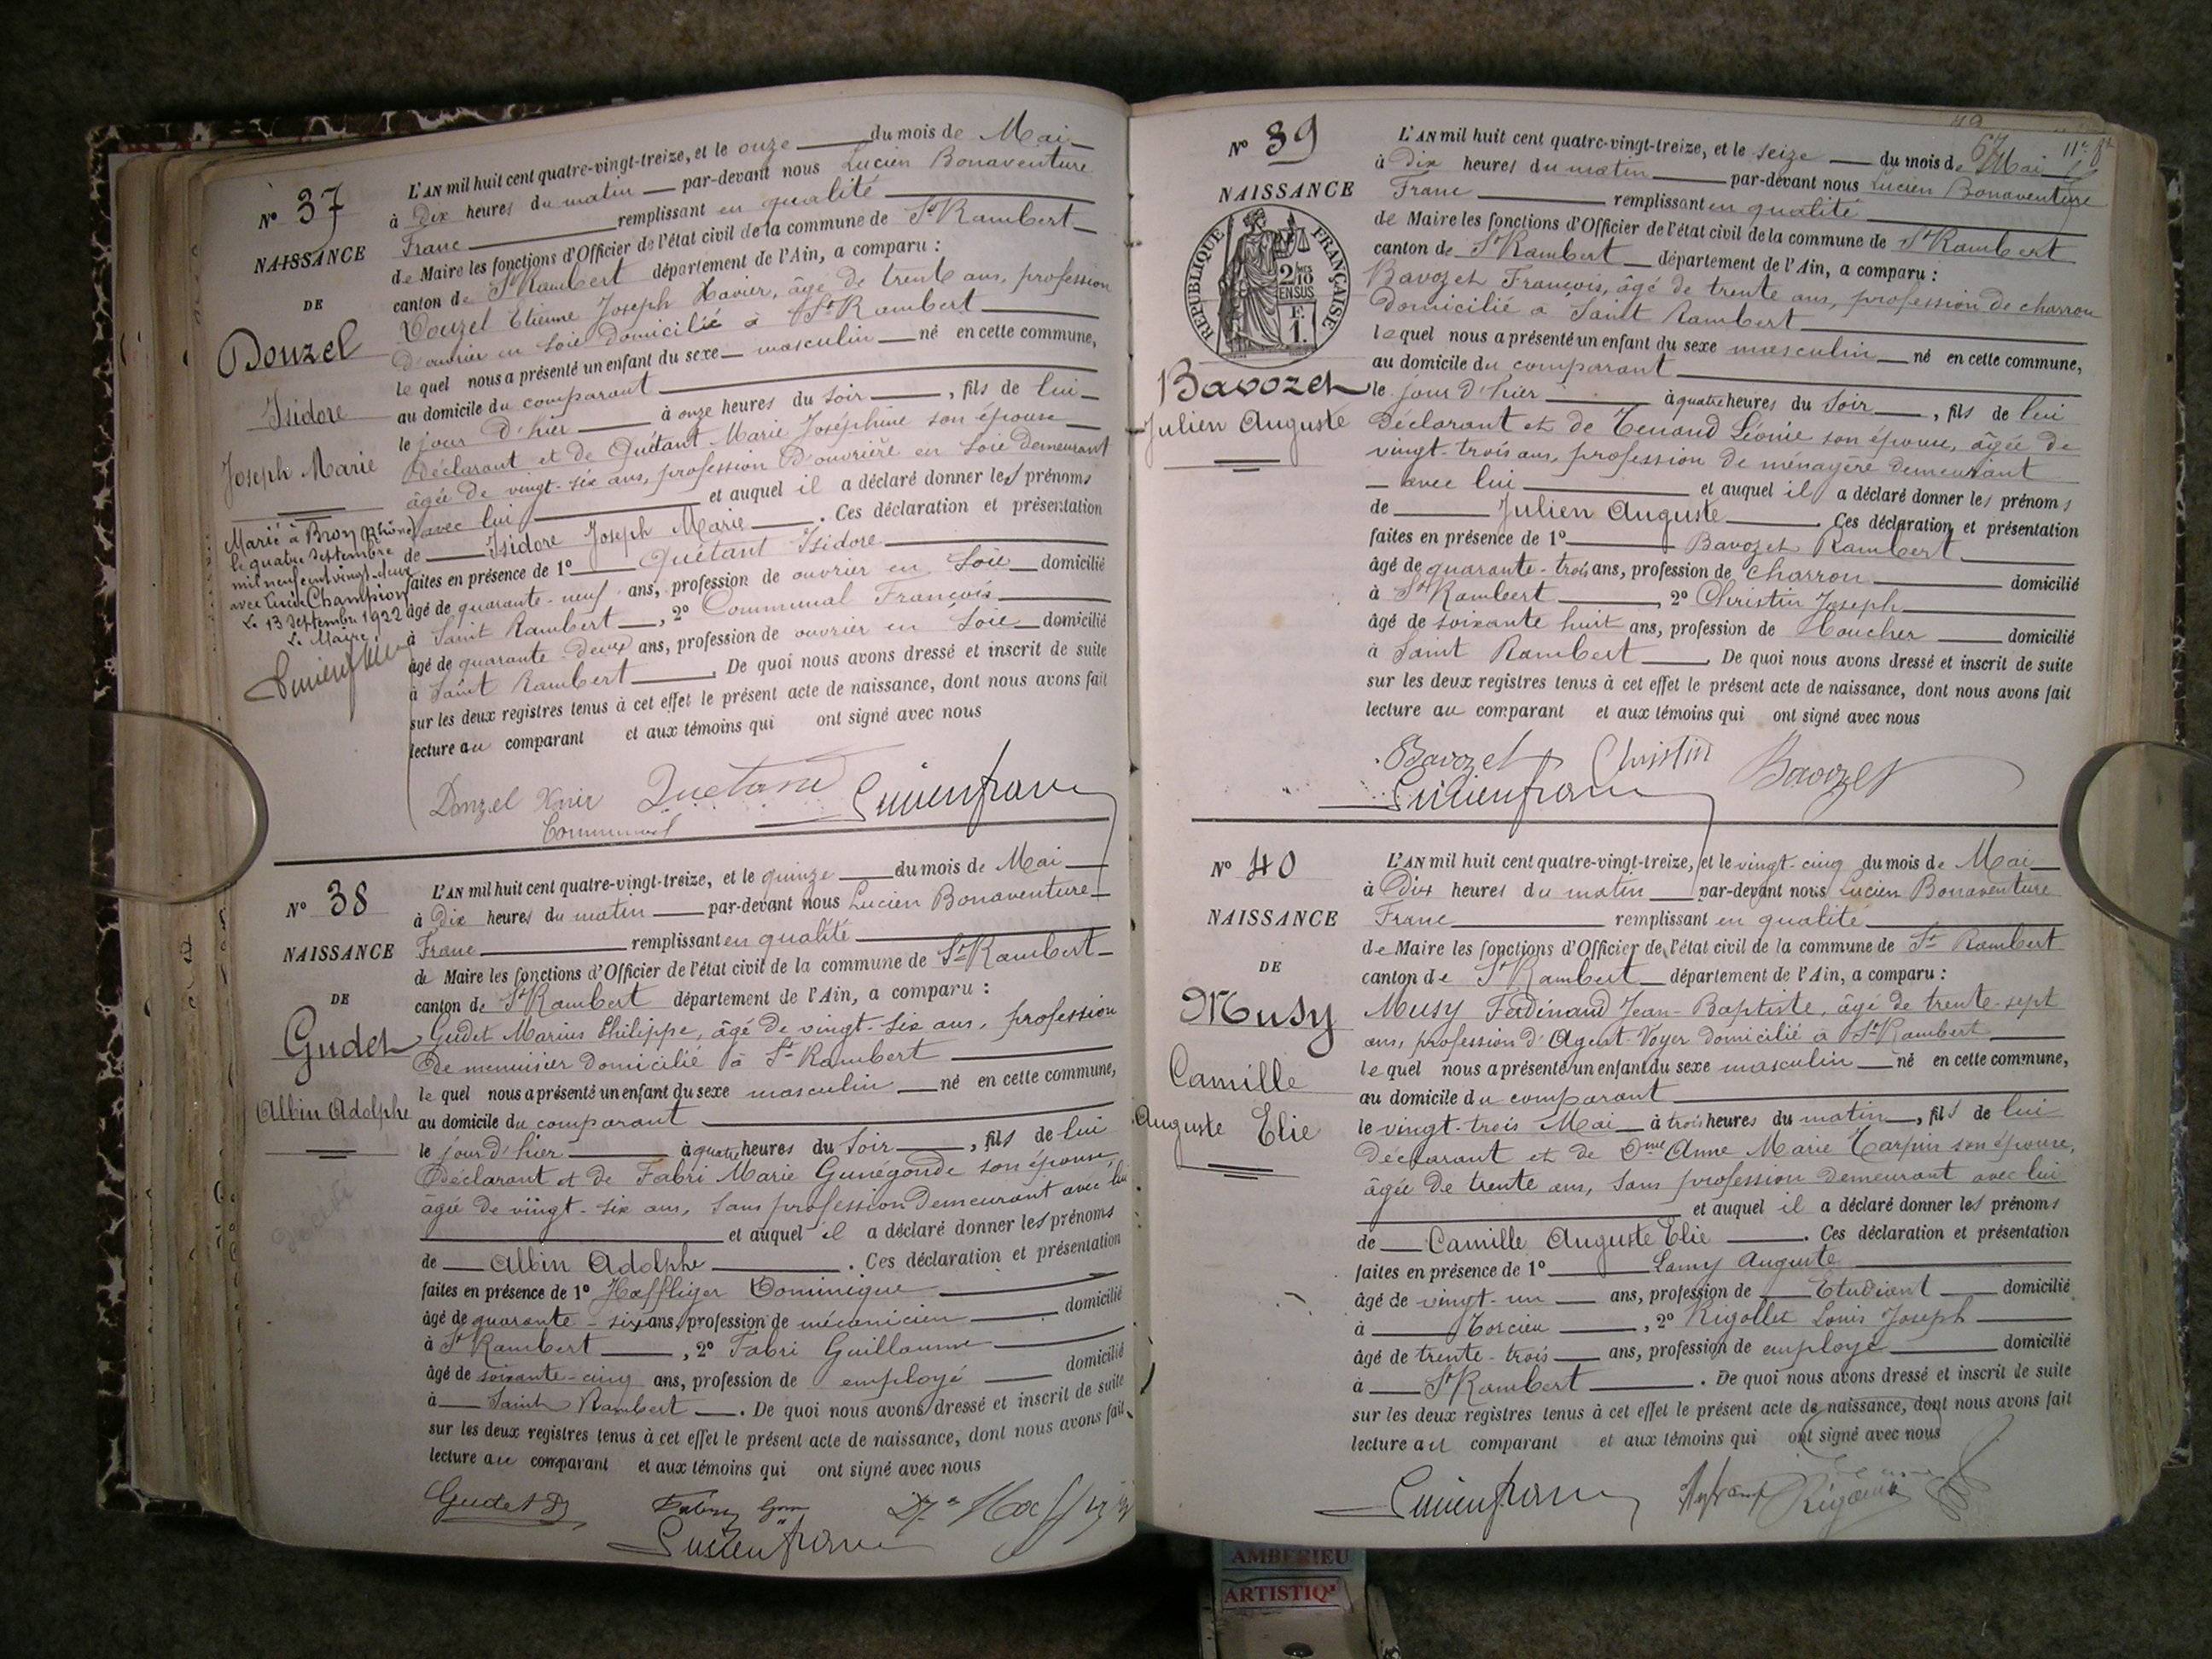 N° 37
NAISSANCE
DE
Douzel
Isidore
Joseph Marie
Marié à Bron (Rhône)
le quatre Septembre
mil neuf cent vingt-deux
avec Lucie Champion
Le 13 Septembre 1922
Le Maire,
L'AN mil huit cent quatre-vingt-treize, et le onze du mois de Mai
à Dix heures du matin par-devant nous Lucien Bonaventure
Franc remplissant en qualité
de Maire les fonctions d'Officier de l'état civil de la commune de St Rambert
canton de St Rambert département de l'Ain, a comparu :
Douzel Etienne Joseph Xavier, âgé de trente ans, profession
d'ouvrier en soie domicilié à St Rambert
lequel nous a présenté un enfant du sexe masculin né en cette commune,
au domicile du comparant
le jour d'hier à onze heures du soir, fils de lui
Déclarant et de Quétant Marie Joséphine son épouse
âgée de vingt-six ans, profession d'ouvrière en soie demeurant
avec lui et auquel il a déclaré donner les prénoms
de Isidore Joseph Marie. Ces déclaration et présentation
faites en présence de 1° Quétant Isidore
âgé de quarante-neuf ans, profession de ouvrier en soie domicilié
à Saint Rambert, 2° Communal François
âgé de quarante-deux ans, profession de ouvrier en soie domicilié
à Saint Rambert. De quoi nous avons dressé et inscrit de suite
sur les deux registres tenus à cet effet le présent acte de naissance, dont nous avons fait
lecture au comparant et aux témoins qui ont signé avec nous
Quetant Lucien franc
Communal
N° 38
NAISSANCE
DE
Gudet
Albin Adolphe
L'AN mil huit cent quatre-vingt-treize, et le quinze du mois de Mai
à Dix heures du matin par-devant nous Lucien Bonaventure
Franc remplissant en qualité
de Maire les fonctions d'Officier de l'état civil de la commune de St Rambert
canton de St Rambert département de l'Ain, a comparu :
Gudet Marius Philippe, âgé de vingt-six ans, profession
De menuisier domicilié à St Rambert
lequel nous a présenté un enfant du sexe masculin né en cette commune,
au domicile du comparant
le jour d'hier à quatre heures du soir, fils de lui
Déclarant et de Fabri Marie Gunégonde son épouse
âgée de vingt-six ans, sans profession demeurant avec lui
et auquel il a déclaré donner les prénoms
de Albin Adolphe. Ces déclaration et présentation
faites en présence de 1° Haffliger Dominique
âgé de quarante-six ans, profession de mécanicien domicilié
à St Rambert, 2° Fabri Guillaume
âgé de soixante-cinq ans, profession de employé domicilié
à Saint Rambert. De quoi nous avons dressé et inscrit de suite
sur les deux registres tenus à cet effet le présent acte de naissance, dont nous avons fait
lecture au comparant et aux témoins qui ont signé avec nous
Gudet
Lucien franc
67
N° 39
NAISSANCE
RÉPUBLIQUE FRANÇAISE
2/10
EN SUS
F.
1.
Bavozet
Julien Auguste
L'AN mil huit cent quatre-vingt-treize, et le seize du mois de Mai
à Dix heures du matin par-devant nous Lucien Bonaventure
Franc remplissant en qualité
de Maire les fonctions d'Officier de l'état civil de la commune de St Rambert
canton de St Rambert département de l'Ain, a comparu :
Bavozet François, âgé de trente ans, profession de charron
domicilié à Saint Rambert
lequel nous a présenté un enfant du sexe masculin né en cette commune,
au domicile du comparant
le jour d'hier à quatre heures du soir, fils de lui
Déclarant et de Tenand Léonie son épouse, âgée de
vingt-trois ans, profession de ménagère demeurant
avec lui et auquel il a déclaré donner les prénoms
de Julien Auguste. Ces déclaration et présentation
faites en présence de 1° Bavozet Rambert
âgé de quarante-trois ans, profession de charron domicilié
à St Rambert, 2° Christin Joseph
âgé de soixante huit ans, profession de Boucher domicilié
à Saint Rambert. De quoi nous avons dressé et inscrit de suite
sur les deux registres tenus à cet effet le présent acte de naissance, dont nous avons fait
lecture au comparant et aux témoins qui ont signé avec nous
Bavozet Christin Bavozet
Lucien franc
N° 40
NAISSANCE
DE
Musy
Camille
Auguste Elie
L'AN mil huit cent quatre-vingt-treize, et le vingt-cinq du mois de Mai
à Dix heures du matin par-devant nous Lucien Bonaventure
Franc remplissant en qualité
de Maire les fonctions d'Officier de l'état civil de la commune de St Rambert
canton de St Rambert département de l'Ain, a comparu :
Musy Ferdinand Jean-Baptiste, âgé de trente-sept
ans, profession d'Agent-Voyer domicilié à St Rambert
lequel nous a présenté un enfant du sexe masculin né en cette commune,
au domicile du comparant
le vingt-trois Mai à trois heures du matin, fils de lui
déclarant et de Dme Anne Marie Tarpin son épouse,
âgée de trente ans, sans profession demeurant avec lui
et auquel il a déclaré donner les prénoms
de Camille Auguste Elie. Ces déclaration et présentation
faites en présence de 1° Lamy Auguste
âgé de vingt-un ans, profession de Etudiant domicilié
à Torcieu, 2° Rigollet Louis Joseph
âgé de trente-trois ans, profession de employé domicilié
à St Rambert. De quoi nous avons dressé et inscrit de suite
sur les deux registres tenus à cet effet le présent acte de naissance, dont nous avons fait
lecture au comparant et aux témoins qui ont signé avec nous
Lucien franc
AMBERIEU
ARTISTIQ